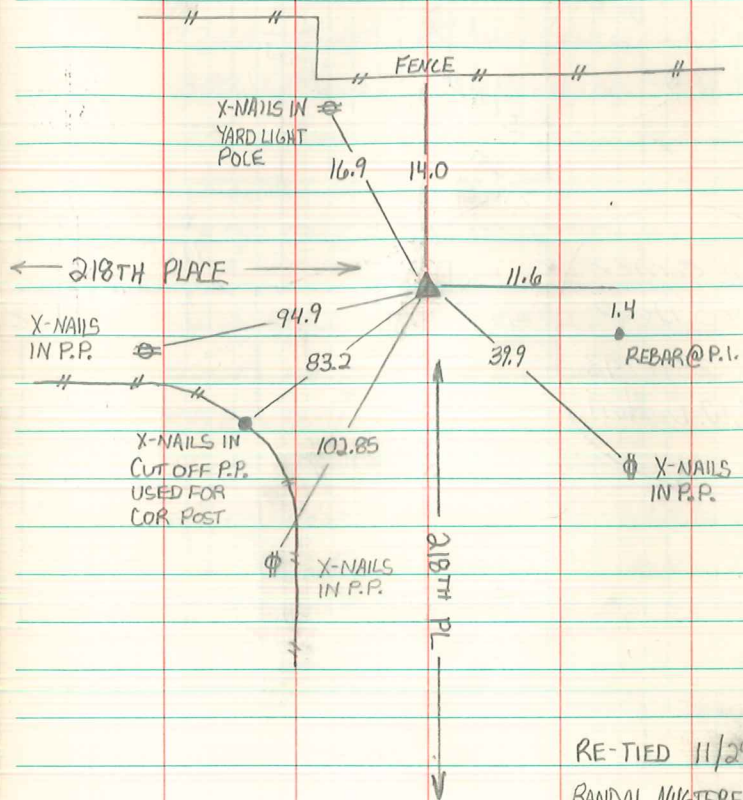 FENCE
X-NAILS IN
YARD LIGHT
POLE
16.9
14.0
218TH PLACE
11.6
94.9
1.4
X-NAILS
IN P.P.
83.2
39.9
REBAR @ P.I.
X-NAILS IN
CUT OFF P.P.
USED FOR
COR POST
102.85
X-NAILS
IN P.P.
X-NAILS
IN P.P.
218TH PL
RE-TIED 11/2
RANDAL